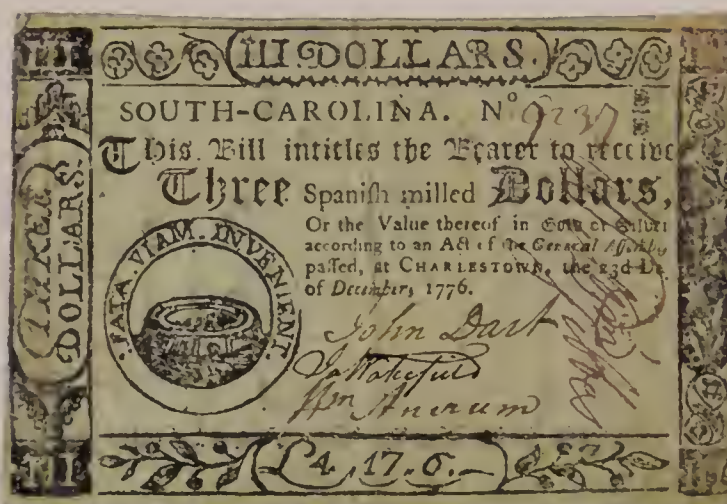 III DOLLARS.
THREE
DOLLARS.
SOUTH-CAROLINA. No 9237
This Bill intitles the Bearer to receive
Three Spanish milled Dollars,
Or the Value thereof in Gold or Silver
according to an Act of the General Assembly
passed, at CHARLESTOWN, the 23d Da
of December, 1776.
FATA. VIAM. INVENIENT.
John Dart
Ja Wakefield
Wm Ancrum
III
£4..17.6.